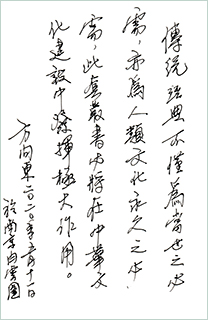 傳統經典不僅為當世之必
需，亦為人類文化永久之必
需，此套叢書必將在中華文
化建設中發揮極大作用。
方向東二〇二〇年五月十一日
於南京白雲園